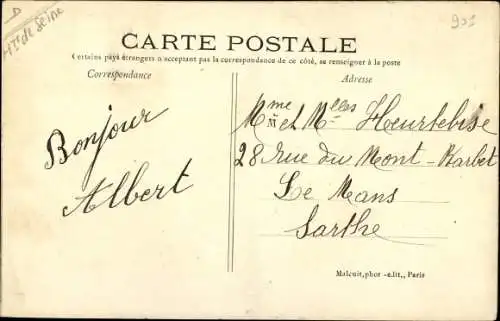 D
Hts de Seine
901
CARTE POSTALE
Certains pays étrangers n'acceptant pas la correspondance de ce côté, se renseigner à la poste
Correspondance
Adresse
Bonjour
Albert
Mme et Melles Heurtebise
M
28 rue du Mont-Barbet
Le Mans
Sarthe
Malcuit, phot-e.lit., Paris